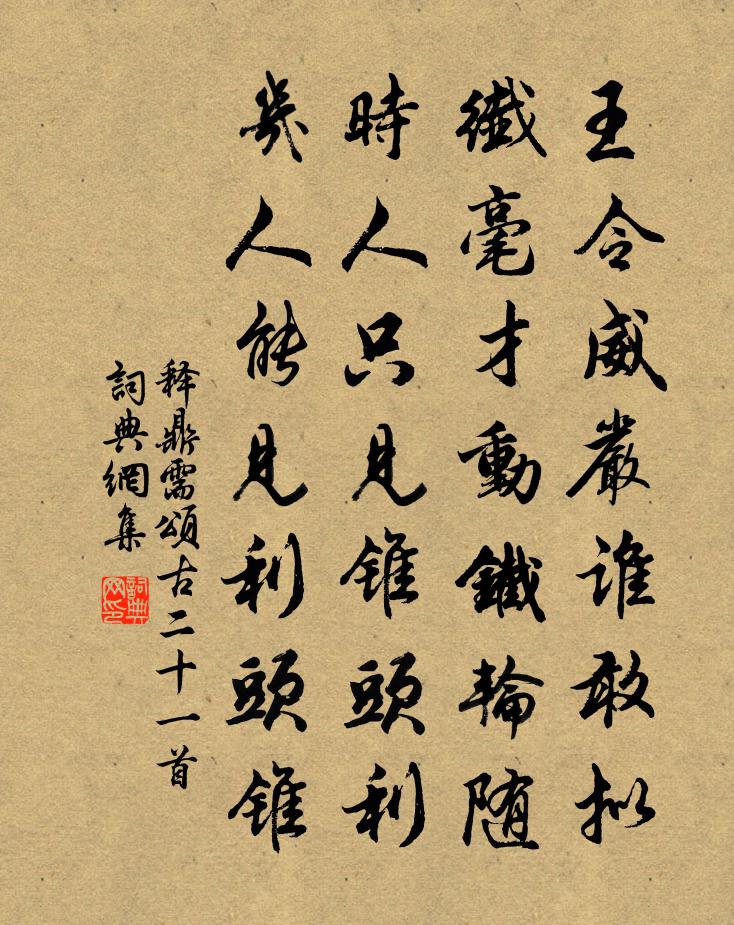 王令威嚴誰敢拟
纖毫才動鐵輪随
時人只見錐頭利
幾人能見利頭錐
释鼎需頌古二十一首
詞典網集
詞典
网印